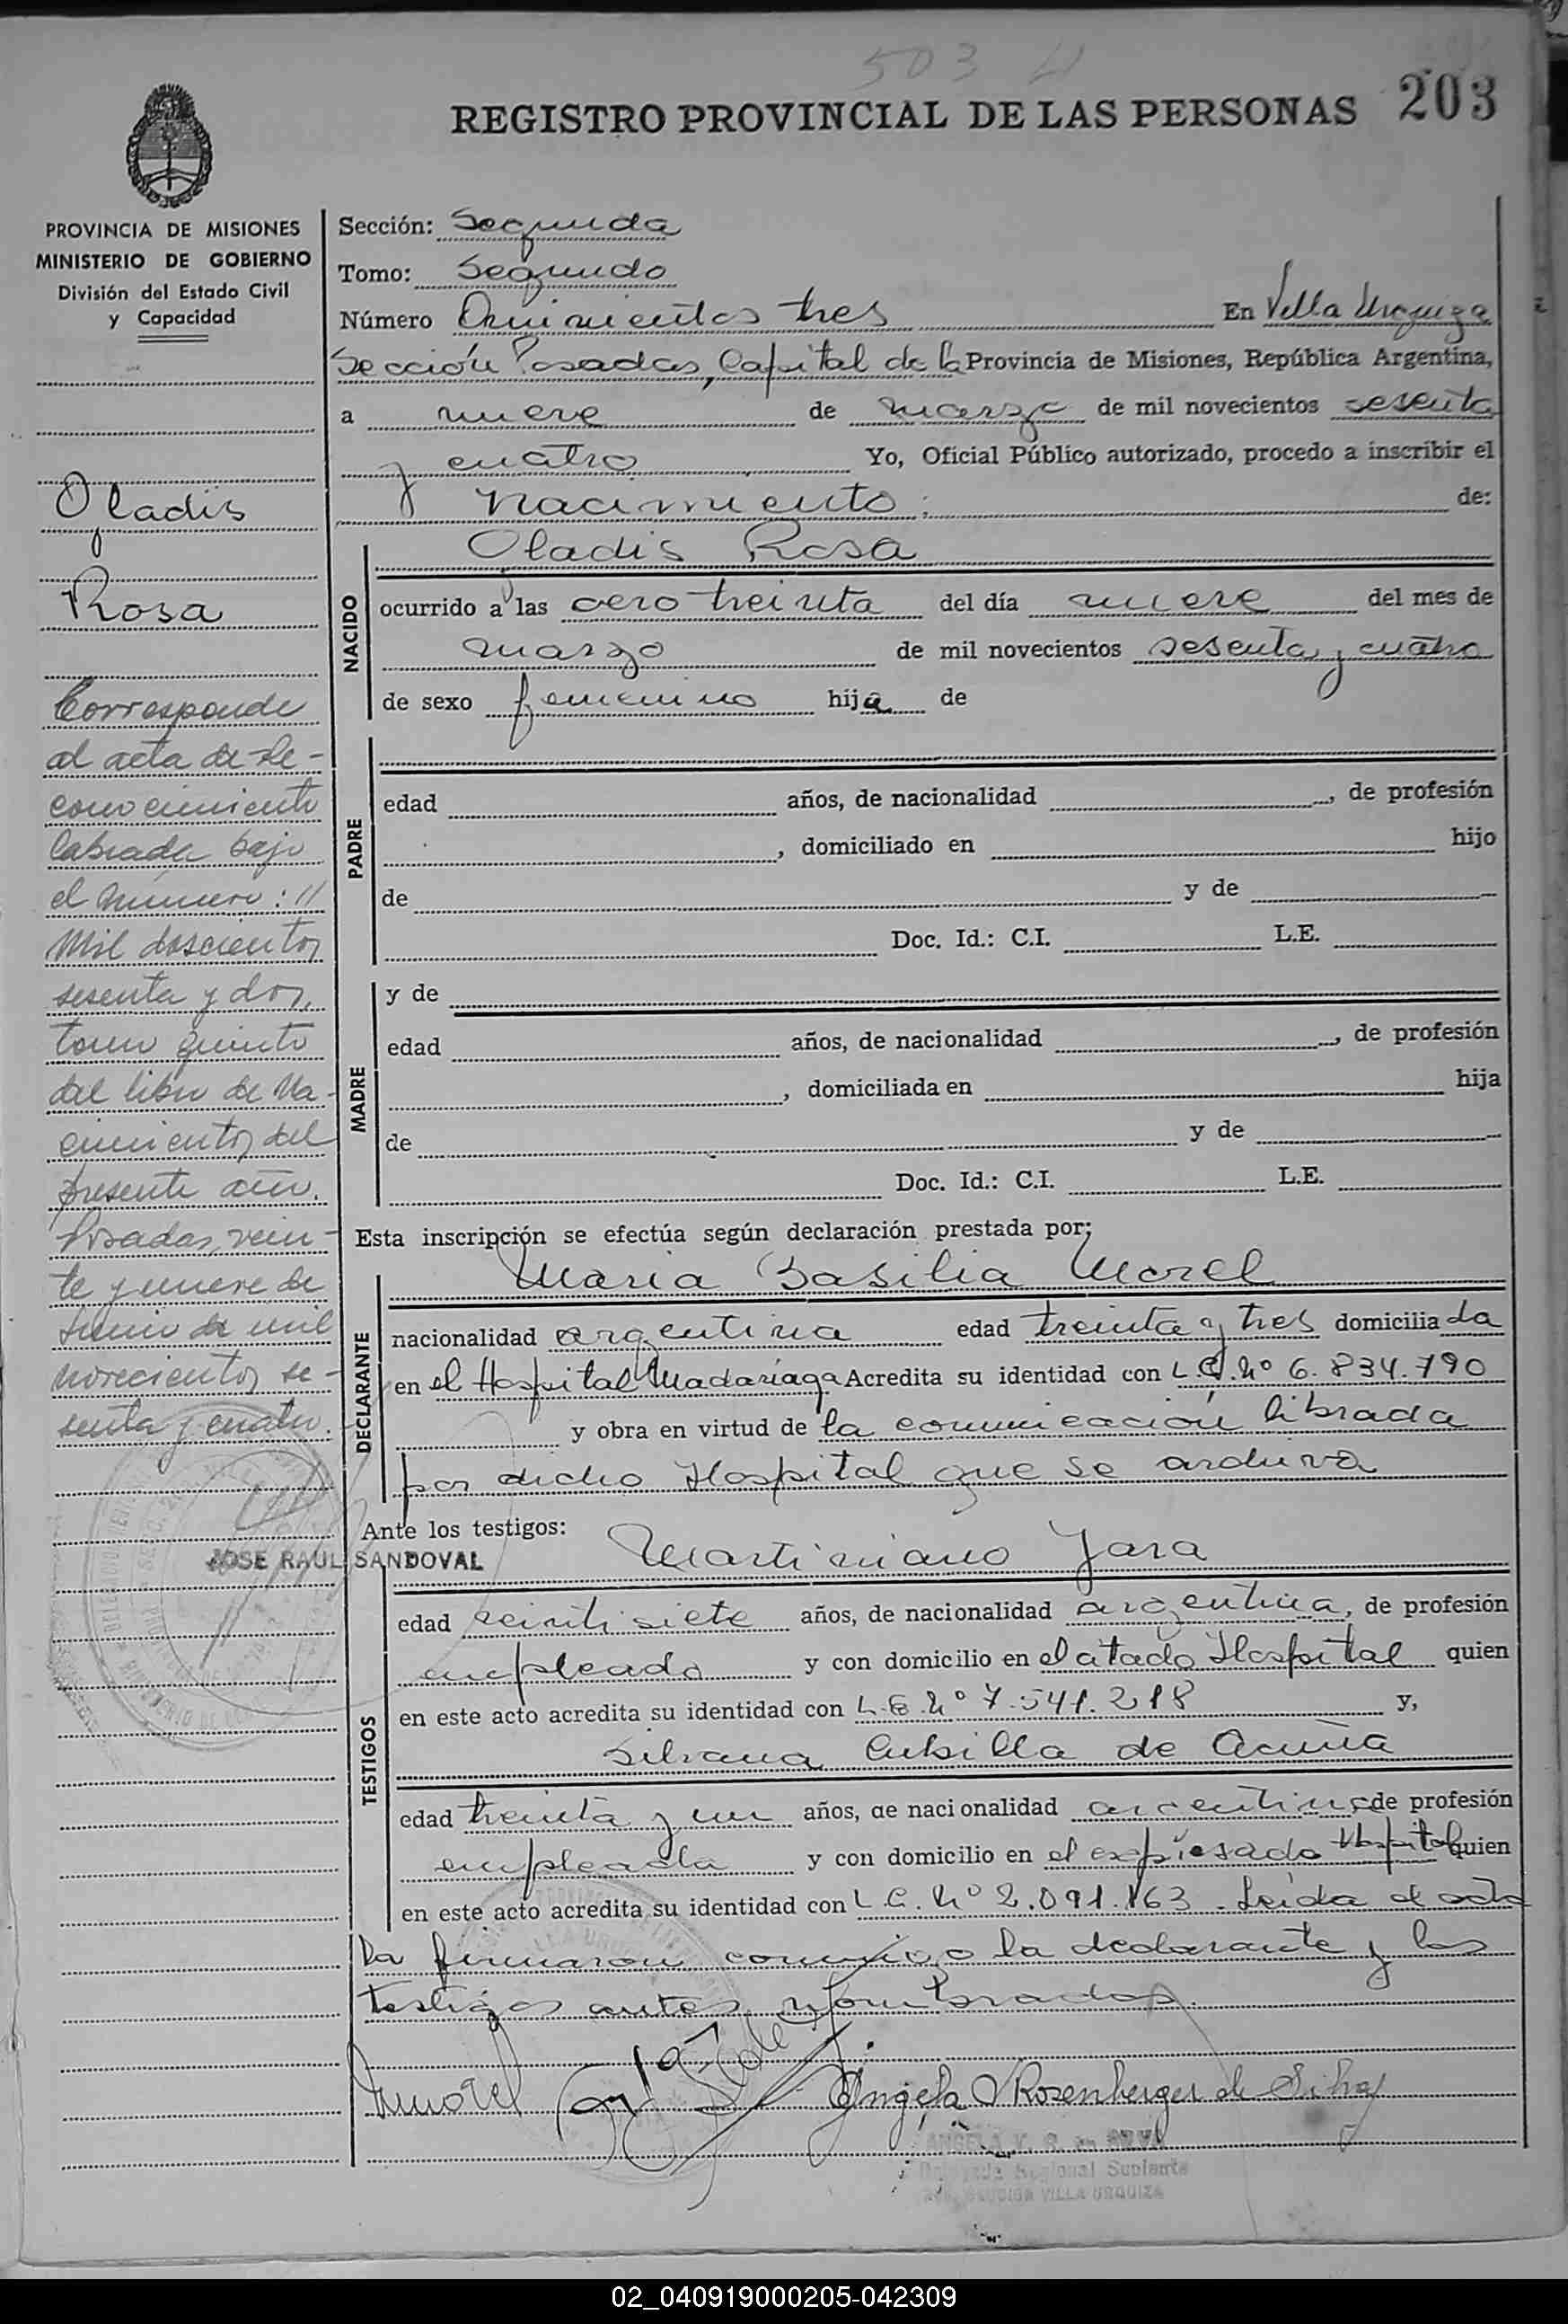 503
203
REGISTRO PROVINCIAL DE LAS PERSONAS
PROVINCIA DE MISIONES
MINISTERIO DE GOBIERNO
División del Estado Civil
y Capacidad
Gladis
Rosa
Corresponde
al acta de Re-
conocimiento
labrada bajo
el número: //
Mil doscientos
sesenta y dos,
tomo quinto
del libro de Na-
cimientos del
presente año.
Posadas, vein-
te y nueve de
Junio de mil
novecientos se-
senta y cuatro.
JOSE RAUL SANDOVAL
Sección: Segunda
Tomo: Segundo
Número Quinientos tres En Villa Urquiza
Sección Posadas, Capital de la Provincia de Misiones, República Argentina,
a nueve de marzo de mil novecientos sesenta
y cuatro Yo, Oficial Público autorizado, procedo a inscribir el
nacimiento: de:
NACIDO
Gladis Rosa
ocurrido a las cero treinta del día nueve del mes de
marzo de mil novecientos sesenta y cuatro
de sexo femenino hija de
PADRE
edad años, de nacionalidad , de profesión
, domiciliado en hijo
de y de
Doc. Id.: C.I. L.E.
MADRE
y de
edad años, de nacionalidad , de profesión
, domiciliada en hija
de y de
Doc. Id.: C.I. L.E.
Esta inscripción se efectúa según declaración prestada por;
DECLARANTE
Maria Basilia Morel
nacionalidad argentina edad treinta y tres domiciliada
en el Hospital Madariaga Acredita su identidad con L.C. Nº 6.834.790
y obra en virtud de la comunicación librada
por dicho Hospital que se archiva
Ante los testigos:
TESTIGOS
Martiniano Jara
edad veintisiete años, de nacionalidad argentina, de profesión
empleado y con domicilio en el citado Hospital quien
en este acto acredita su identidad con L.E. Nº 7.541.218 y,
Silvana Cubilla de Acuña
edad treinta y un años, de nacionalidad argentina de profesión
empleada y con domicilio en el expresado Hospital quien
en este acto acredita su identidad con L.C. Nº 2.091.163. Leída el acta
la firmaron conmigo la declarante y los
testigos antes nombrados.
Morel
Angela V Rosenberger de Silva
Delegada Regional Suplente
VILLA URQUIZA
02_040919000205-042309